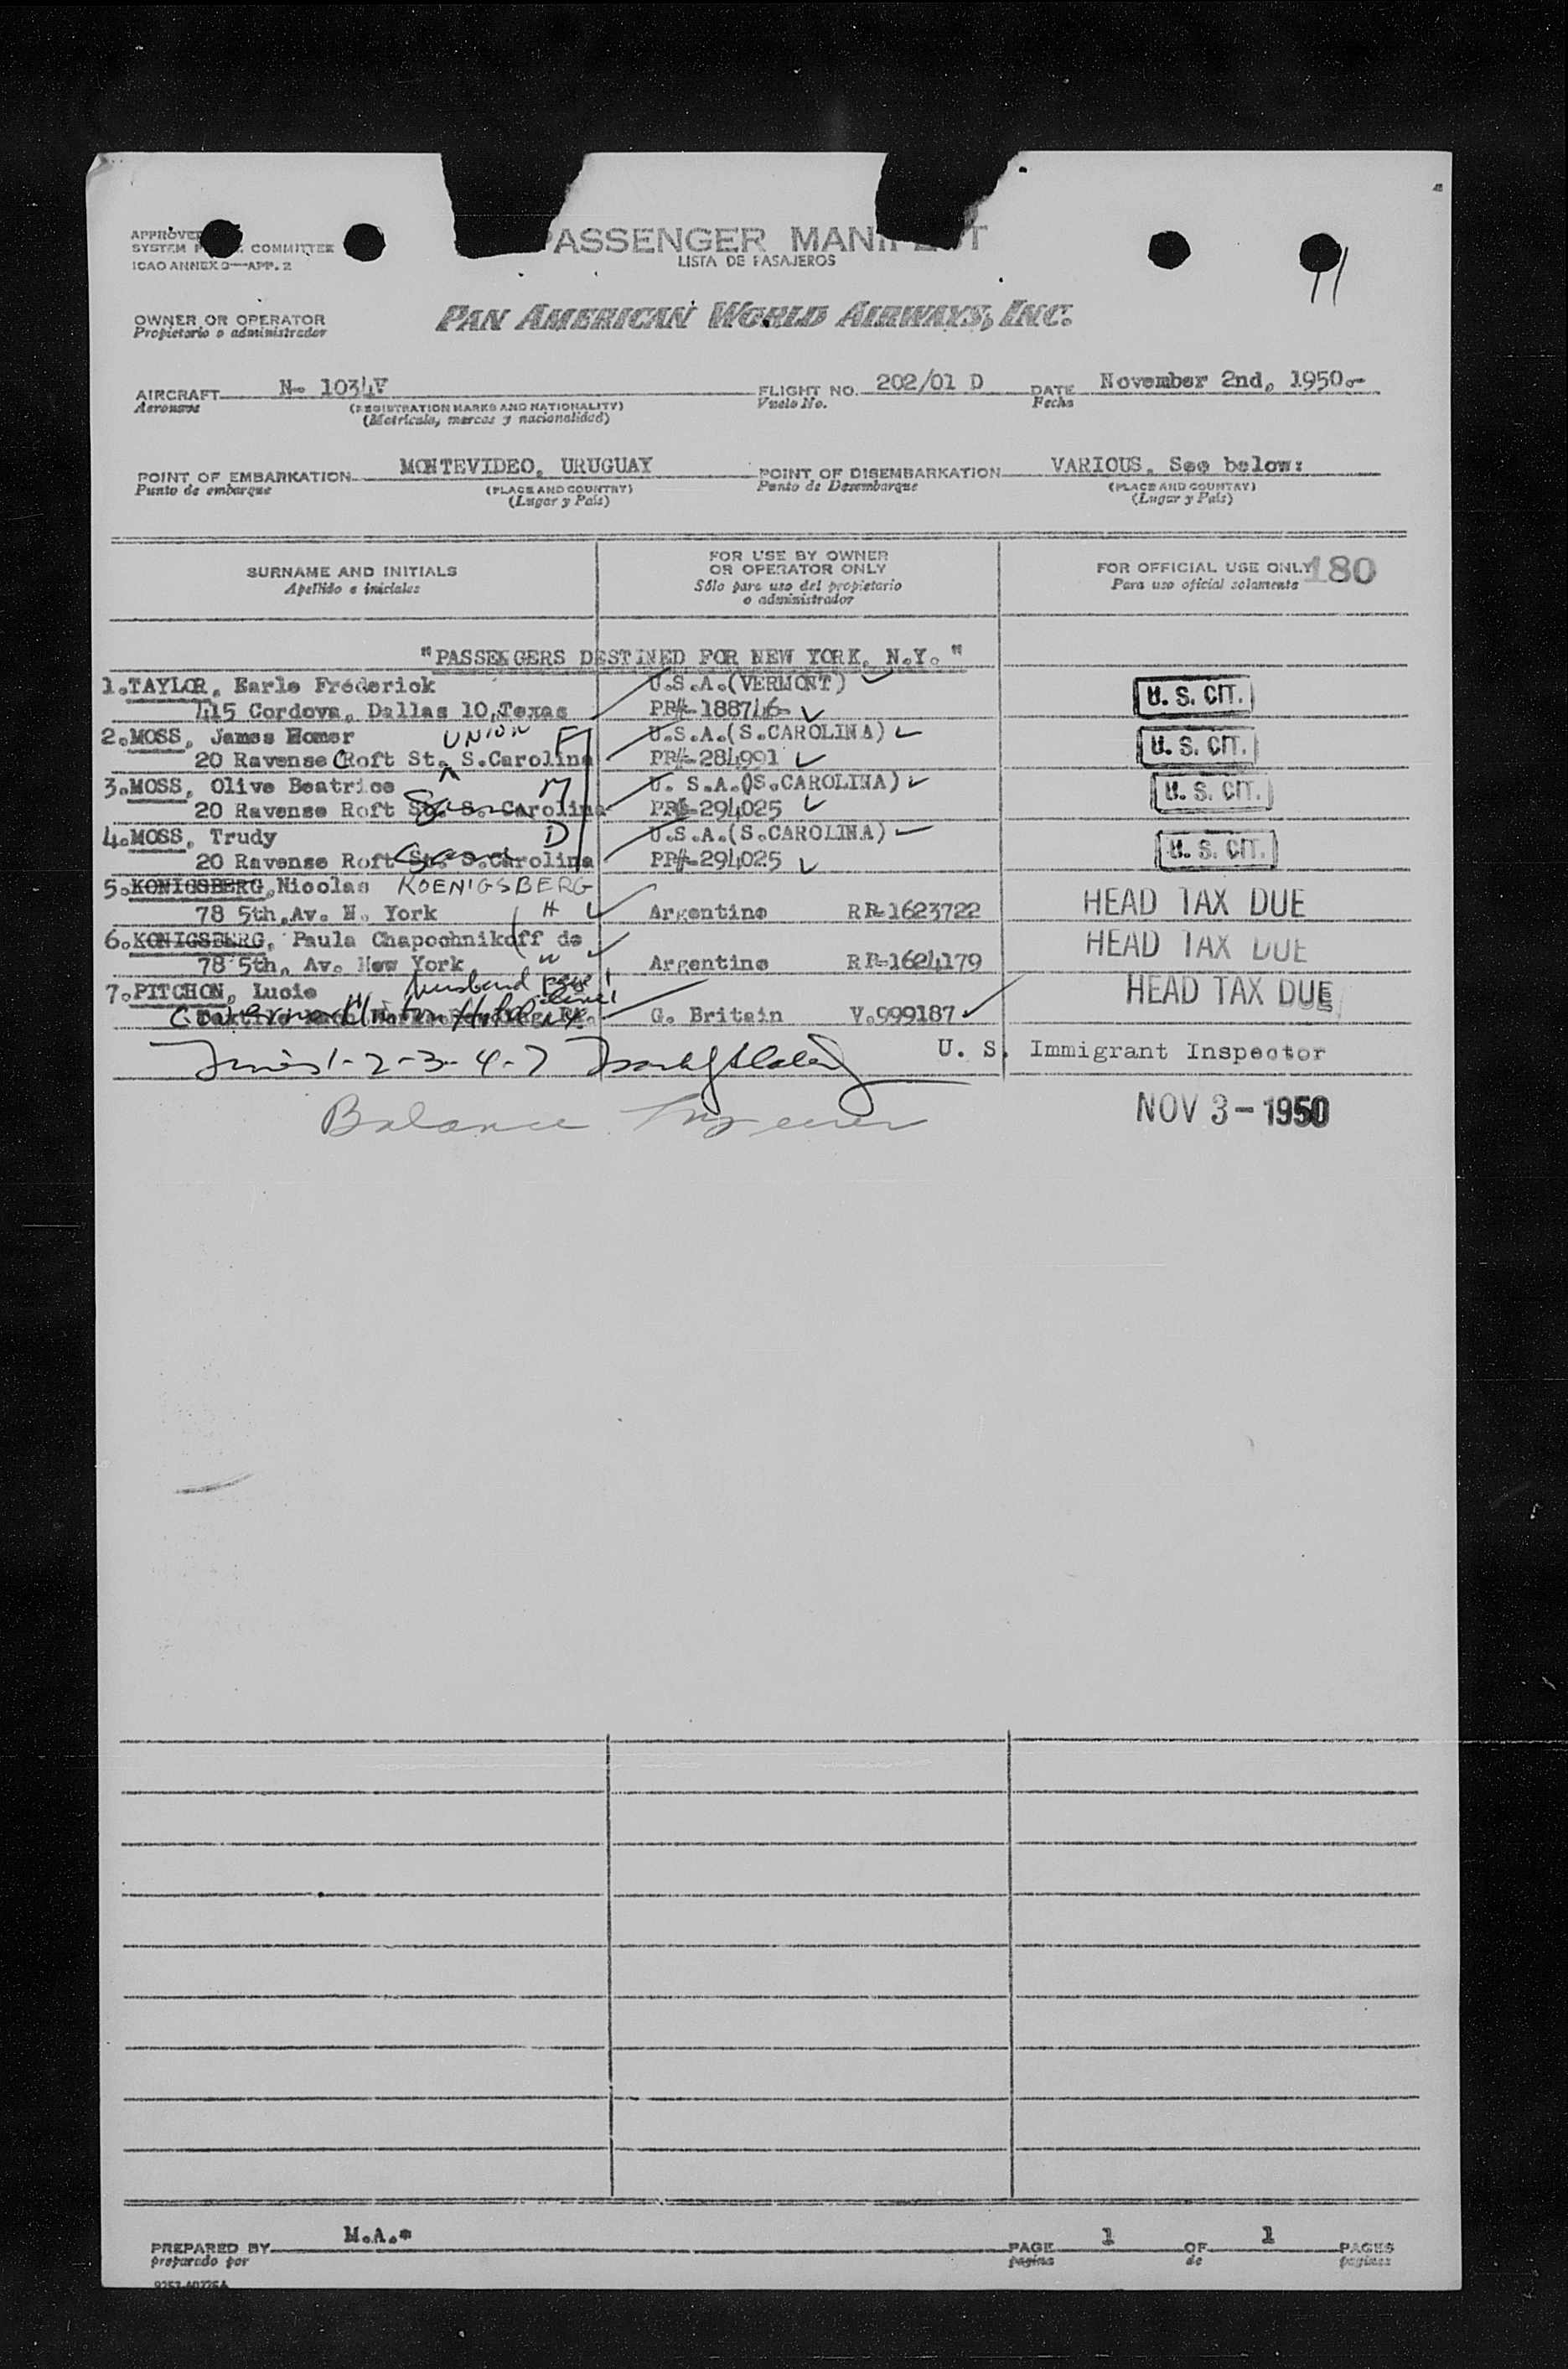 APPROVED
SYSTEM COMMITTEE
ICAO ANNEX 9—APP. 2
PASSENGER MANIFEST
LISTA DE PASAJEROS
11
OWNER OR OPERATOR
Propietario o administrador
PAN AMERICAN WORLD AIRWAYS, INC.
AIRCRAFT N- 1034V FLIGHT NO. 202/01 D DATE November 2nd, 1950.-
Aeronave (REGISTRATION MARKS AND NATIONALITY) Vuelo No. Fecha
(Matrícula, marcas y nacionalidad)
POINT OF EMBARKATION MONTEVIDEO, URUGUAY POINT OF DISEMBARKATION VARIOUS, See below:
Punto de embarque (PLACE AND COUNTRY) Punto de Desembarque (PLACE AND COUNTRY)
(Lugar y País) (Lugar y País)
SURNAME AND INITIALS FOR USE BY OWNER OR OPERATOR ONLY FOR OFFICIAL USE ONLY 180
Apellido e iniciales Sólo para uso del propietario o administrador Para uso oficial solamente
"PASSENGERS DESTINED FOR NEW YORK, N.Y."
1.TAYLOR, Earle Frederick U.S.A.(VERMONT) U. S. CIT.
415 Cordova, Dallas 10,Texas PP#-188746-
2.MOSS, James Homer UNION F U.S.A.(S.CAROLINA) U. S. CIT.
20 Ravense Croft St. S.Carolina PP#-284991
3.MOSS, Olive Beatrice M U. S.A.(S.CAROLINA) U. S. CIT.
20 Ravense Roft St. S. Carolina PP#-294025
4.MOSS, Trudy D U.S.A.(S.CAROLINA) U. S. CIT.
20 Ravense Roft St. S.Carolina PP#-294025
5.KONIGSBERG,Nicolas KOENIGSBERG HEAD TAX DUE
78 5th,Av. N. York H Argentine RR-1623722
6.KONIGSBERG, Paula Chapochnikoff de HEAD TAX DUE
78 5th, Av. New York W Argentine RR-1624179
7.PITCHON, Lucie husband HEAD TAX DUE
Hotel G. Britain V.999187
1-2-3-4-7 U. S. Immigrant Inspector
Balance NOV 3 - 1950
PREPARED BY M.A.* PAGE 1 OF 1 PAGES
preparado por pagina de paginas